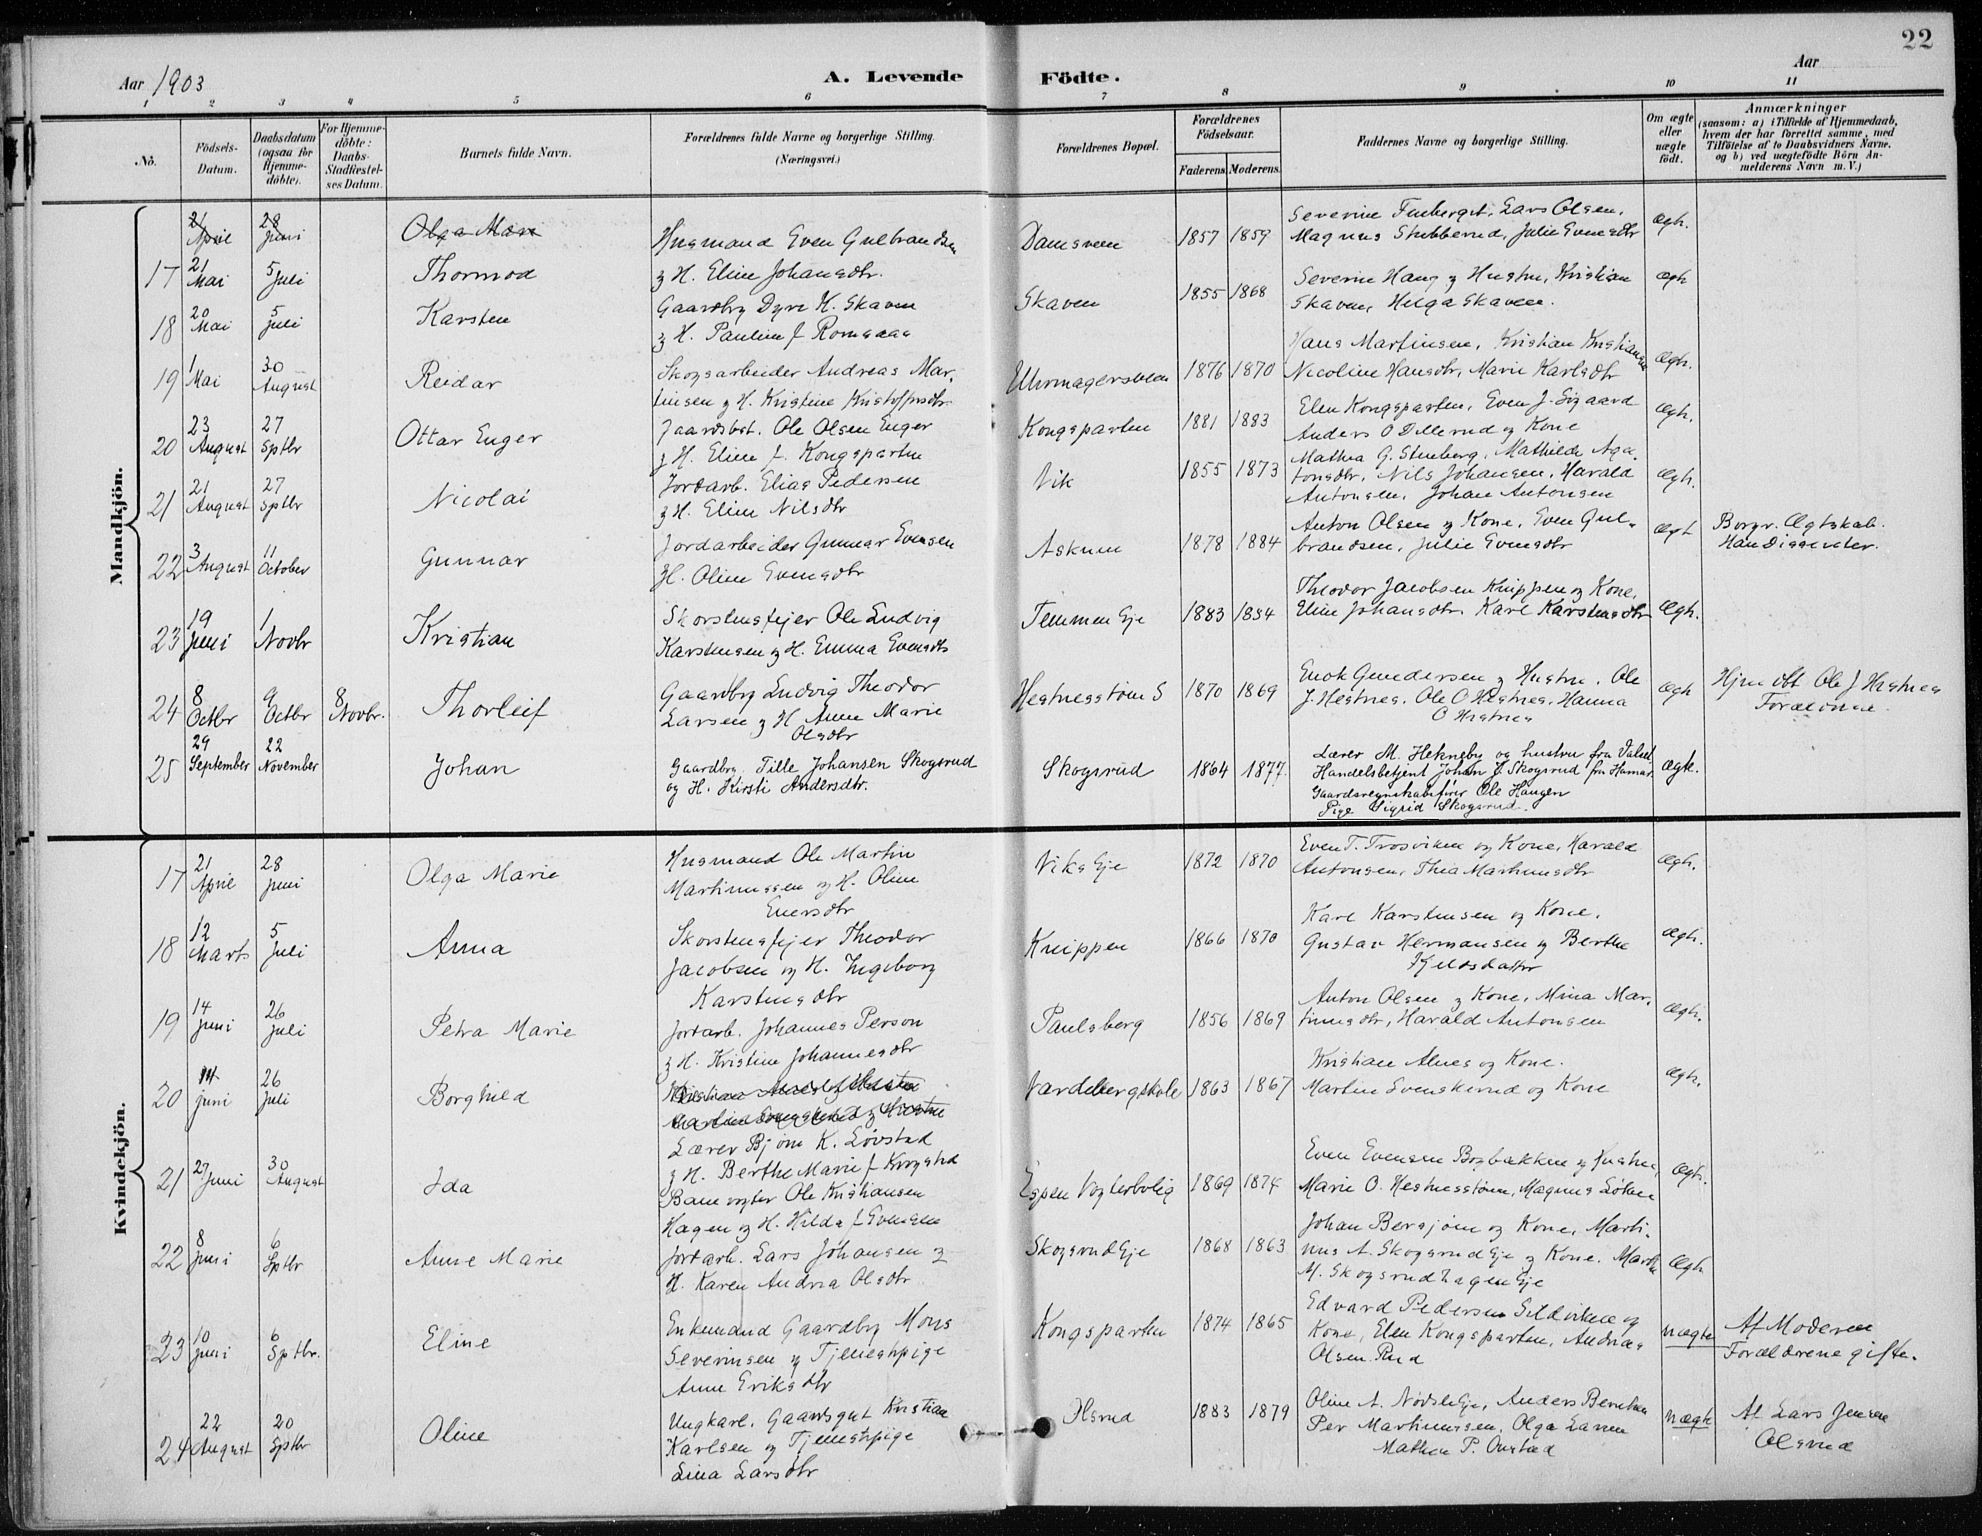 22
Aar 1903
A. Levende Födte.
Aar
1 2 3 4 5 6 7 8 9 10 11
No.
Födsels-Datum.
Daabsdatum (ogsaa for Hjemme-döbte).
For Hjemme-döbte: Daabs-Stadfæstel-ses Datum.
Barnets fulde Navn.
Forældrenes fulde Navne og borgerlige Stilling. (Næringsvei.)
Forældrenes Bopæl.
Forældrenes Födselsaar.
Faderens Moderens.
Faddernes Navne og borgerlige Stilling.
Om ægte eller uægte födt.
Anmærkninger
(saasom: a) i Tilfælde af Hjemmedaab, hvem der har forrettet samme, med Tilföielse af to Daabsvidners Navne, og b) ved uægtefödte Börn An-melderens Navn m. V.)
Mandkjön.
21 April 28 Juni Olga Marie Husmand Even Gulbrandsen
Damsveen 1857 1859 Severine Finberget, Lars Olsen,
Magnus Stubberud, Julie Evensdtr Ægte.
17 21 Mai 5 Juli Thormod & H. Eline Johansdtr.
Skaven 1855 1868 Severin Haug & Hustru, Kristian
Skaven, Helga Skaven. Ægte
18 20 Mai 5 Juli Karsten Gaardbr Dyre K. Skaven
& H. Pauline f. Romsaas
19 1 Mai 30 August Reidar Skogsarbeider Andreas Mar-
tinsen & H. Kristine Kristoffersdtr
Uhrmagersveen 1876 1870 Hans Martinsen, Kristian Kristiansen
Nicoline Hansdtr, Marie Karlsdtr Ægte.
20 23 August 27 Sptbr Ottar Enger Gaardbst. Ole Olsen Enger
& H. Eline f. Kongsparten
Kongsparten 1881 1883 Elen Kongsparten, Even J. Sigaard
Anders O Dillerud og Kone Ægte.
21 21 August 27 Sptbr Nicolai Jordarb. Elias Pedersen
& H. Eline Nilsdtr
Vik 1855 1873 Mathea G. Stenberg, Mathilde Aga-
tonsdtr, Nils Johansen, Harald
Antonsen, Johan Antonsen Ægte.
22 3 August 11 October Gunnar Jordarbeider Gunnar Evensen
& H. Oline Evensdtr
Askum 1878 1884 Anton Olsen & Kone, Even Gul-
brandsen, Julie Evensdtr Ægt Borgr. Ægtskab.
Han Dissenter.
23 19 Juni 1 Novbr Kristian Skorstensfejer Ole Ludvig
Karstensen & H. Emma Evensdtr
Temmen Eje 1883 1884 Theodor Jacobsen Knippen og Kone,
Eline Johansdtr, Karl Karstensdtr Ægte.
24 8 Octbr 9 Octbr 8 Novbr. Thorleif Gaardbr Ludvig Theodor
Larsen & H Anne Marie
Olsdtr
Hestnesstøm S 1870 1869 Enok Gundersen & Hustru, Ole
J. Hestnes, Ole O Hestnes, Hanna
O Hestnes Ægte Hjmdbt Ole J Hestnes
Forældrene
25 29 September 22 November Johan Gaardbr. Tille Johansen Skogsrud
og H. Kirsti Andersdtr.
Skogsrud 1864 1877. Lærer M. Hekneby og hustru fra Valset
Handelsbetjent Johan J. Skogsrud fra Hamar
Gaardsregnskabsfører Ole Haugen
Pige Sigrid Skogsrud. Ægte.
Kvindekjön.
17 21 April 28 Juni Olga Marie Husmand Ole Martin
Martinussen og H. Oline
Enersdtr
Viks Eje 1872 1870 Even T. Trosviken og Kone, Harald
Antonsen, Thea Martinusdtr Ægte.
18 12 Marts 5 Juli Anna Skorstensfejer Theodor
Jacobsen og H. Ingeborg
Karstensdtr
Knippen 1866 1870 Karl Karstensen og Kone,
Gustav Hermansen & Berthe
Kjeldsdatter Ægte.
19 14 Juni 26 Juli Petra Marie Jordarb. Johannes Person
& H. Kristine Johannesdtr
Paulsberg 1856 1869 Anton Olsen & Kone, Mina Mar-
tinusdtr, Harald Antonsen Ægte.
20 14 Juni 26 Juli Borghild Kristian Alnes & Hustru
Martin Svenskerud & Hustru
Lærer Bjørn K. Løvstad
& H. Berthe Marie f. Krogstad
Vardebergskole 1863 1867 Kristian Alnes og Kone.
Martin Svenskerud og Kone Ægte.
21 27 Juni 30 August Ida Banevogter Ole Kristiansen
Hagen og H. Hilda f Evensen
Espen Vogterbolig 1869 1874 Even Evensen Bogbakken & Hustru,
Marie O. Hestnesstøm, Magnus Løken Ægte.
22 8 Juni 6 Sptbr Anne Marie Jordarb. Lars Johansen &
H. Karen Andrea Olsdtr
Skogsrud Eje 1868 1863 Johan Bersjøen og Kone, Marti-
nus A. Skogsrud Eje & Kone, Marthe
M. Skogsrudhagen Eje Ægte
23 10 Juni 6 Sptbr. Eline Enkemand Gaardbr Mons
Severinsen & Tjenestpige
Anne Eriksdtr
Kongsparten 1874 1865 Edvard Pedersen Sildviken og
Kone, Elen Kongsparten, Andreas
Olsen Rud Uægte Af Moderen
Forældrene gifte.
24 22 August 20 Sptbr Oline Ungkarl, Gaardsgut Kristian
Karlsen og Tjenestpige
Lina Larsdtr
Ilsrud 1883 1879 Oline A. Nødsle Eje, Anders Berntsen
Per Martinussen, Olga Larsen
Mathea P. Onstad Uægte Af Lars Jensen
Olsrud